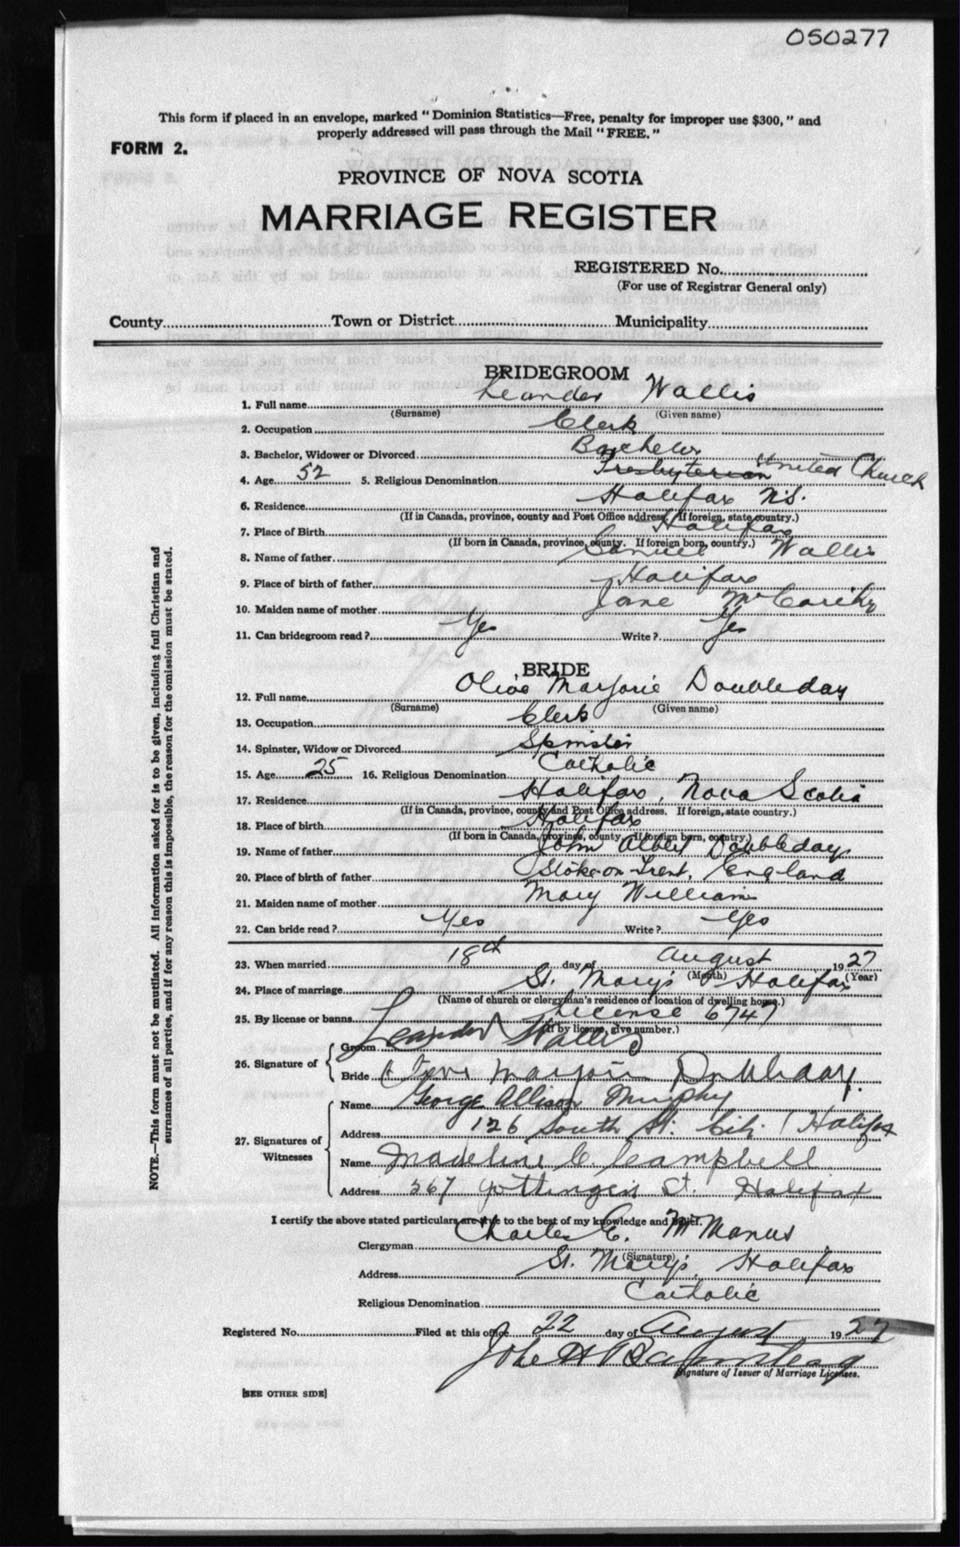 050277
This form if placed in an envelope, marked "Dominion Statistics—Free, penalty for improper use $300," and
properly addressed will pass through the Mail "FREE."
FORM 2.
PROVINCE OF NOVA SCOTIA
MARRIAGE REGISTER
REGISTERED No.
(For use of Registrar General only)
County Town or District Municipality
BRIDEGROOM
1. Full name Leander Wallis
(Surname) (Given name)
2. Occupation Clerk
3. Bachelor, Widower or Divorced Bachelor
4. Age 52 5. Religious Denomination Presbyterian United Church
6. Residence Halifax N.S.
(If in Canada, province, county and Post Office address. If foreign, state country.)
7. Place of Birth Halifax
(If born in Canada, province, county. If foreign born, country.)
8. Name of father Samuel Wallis
9. Place of birth of father Halifax
10. Maiden name of mother Jane
11. Can bridegroom read? Yes Write? Yes
BRIDE
12. Full name Olive Marjorie Doubleday
(Surname) (Given name)
13. Occupation Clerk
14. Spinster, Widow or Divorced Spinster
15. Age 25 16. Religious Denomination Catholic
17. Residence Halifax, Nova Scotia
(If in Canada, province, county and Post Office address. If foreign, state country.)
18. Place of birth Halifax
(If born in Canada, province, county. If foreign born, country.)
19. Name of father John Albert Doubleday
20. Place of birth of father Stoke-on-Trent, England
21. Maiden name of mother Mary Williams
22. Can bride read? Yes Write? Yes
23. When married 18th day of August 1927
(Month) (Year)
24. Place of marriage St. Mary's Halifax
(Name of church or clergyman's residence or location of dwelling house.)
25. By license or banns License 6747
(If by license, give number.)
26. Signature of
Groom Leander Wallis
Bride Olive Marjorie Doubleday.
27. Signatures of Witnesses
Name George Allison Murphy
Address 126 South St. City (Halifax
Name Madeline C Campbell
Address 367 Gottingen St. Halifax
I certify the above stated particulars are true to the best of my knowledge and belief.
Clergyman Charles E. McManus
(Signature)
Address St. Mary's, Halifax
Religious Denomination Catholic
Registered No. Filed at this office 22 day of August 1927
John H
Signature of Issuer of Marriage Licenses.
[SEE OTHER SIDE]
NOTE.—This form must not be mutilated. All information asked for is to be given, including full Christian and
surnames of all parties, and if for any reason this is impossible, the reason for the omission must be stated.